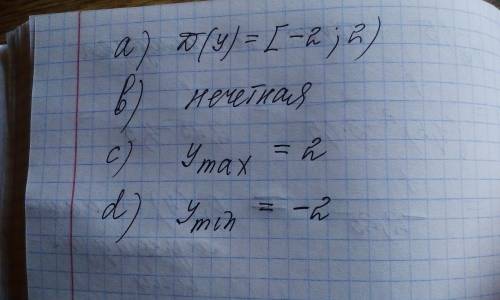 a) D(y) = [-2 ; 2)
b) нечетная
c) y max = 2
d) y min = -2